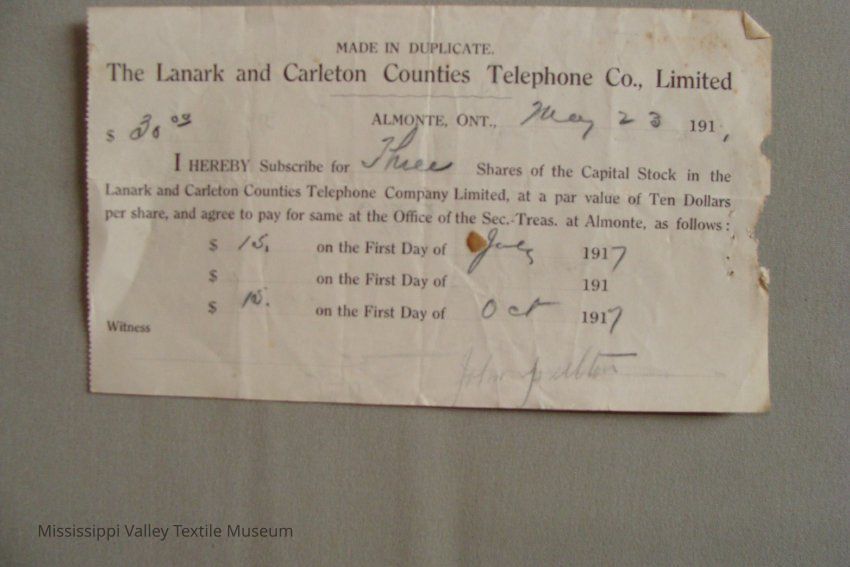 MADE IN DUPLICATE.
The Lanark and Carleton Counties Telephone Co., Limited
$ 30 00 ALMONTE, ONT., May 23 191
I HEREBY Subscribe for Three Shares of the Capital Stock in the
Lanark and Carleton Counties Telephone Company Limited, at a par value of Ten Dollars
per share, and agree to pay for same at the Office of the Sec.-Treas. at Almonte, as follows:
$ 15. on the First Day of July 1917
$ on the First Day of 191
$ 15. on the First Day of Oct 1917
Witness
John
Mississippi Valley Textile Museum